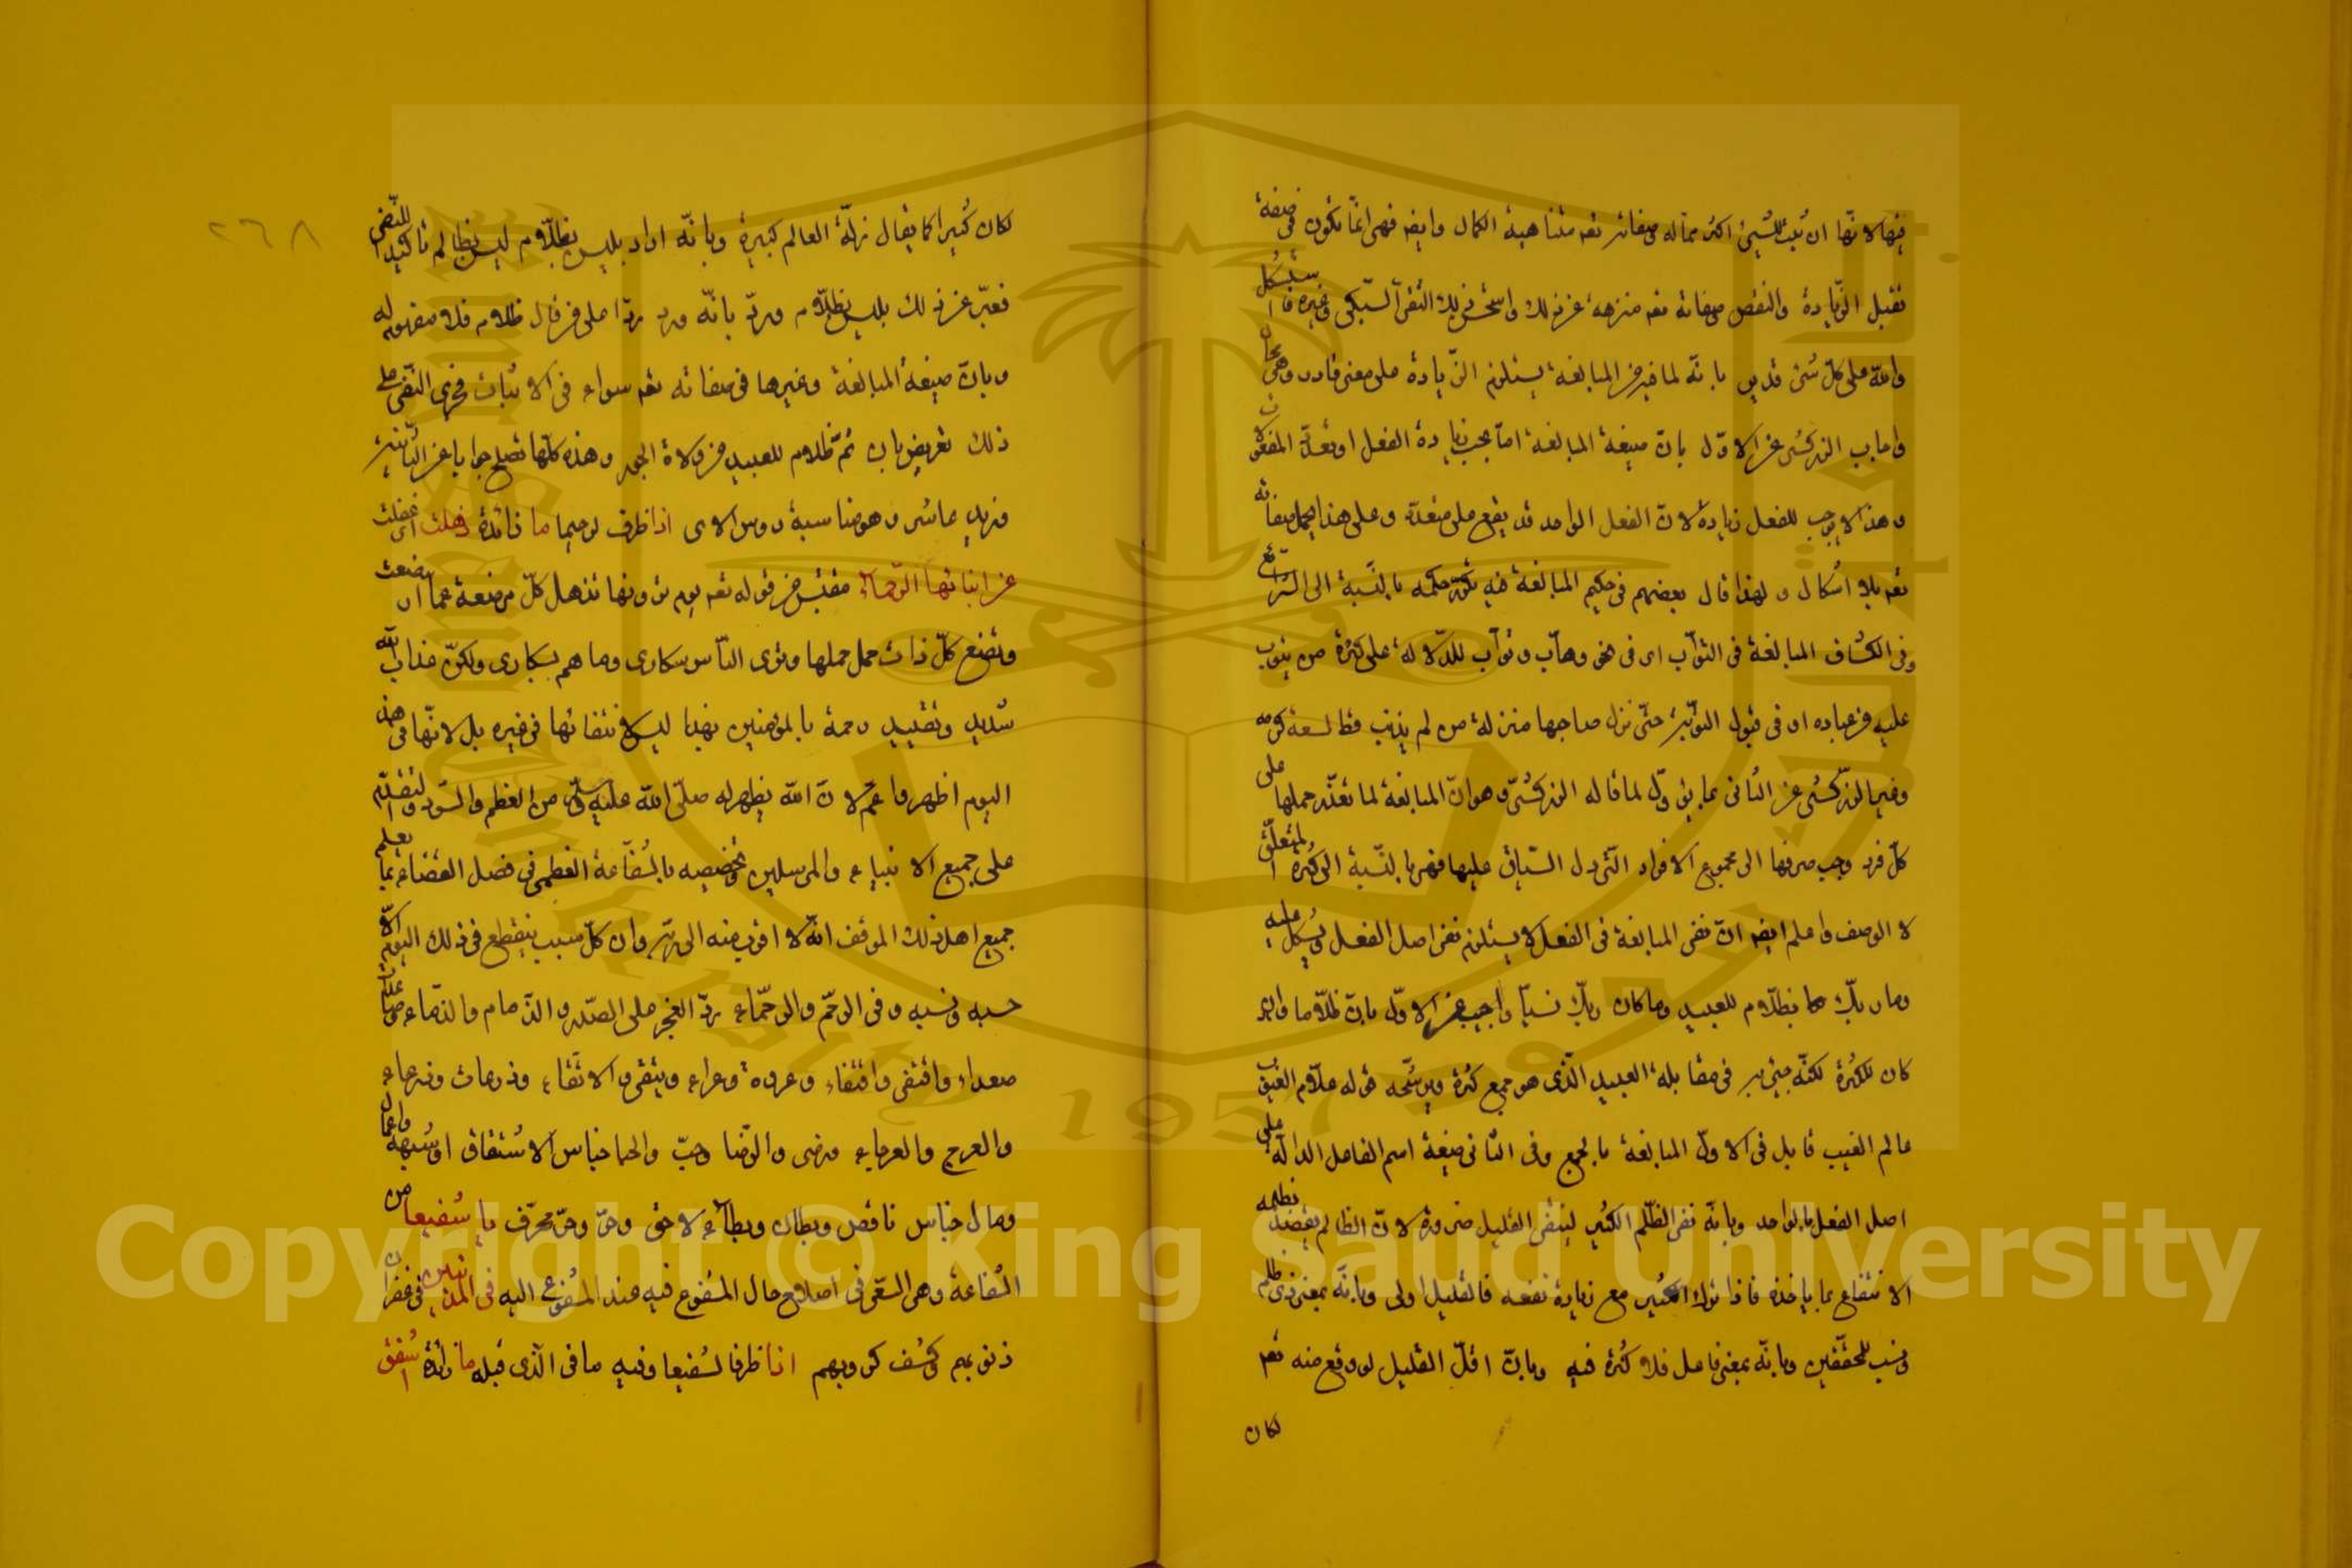 فيها لانها ان تثبت للشيئ اكثر مما له وصفاته تعه متناهية الكمال وايضه فهى انما تكون فى صفة
تقبل الزيادة والنقص وصفاته تعه منزهة عن ذلك واستحسن ذلك التقى السبكى وغيره فاستشكل
والله على كل شئ قدير بانه لما فيه من المبالغة يستلزم الزيادة على معنى قادر وهى محال
واجاب الزركشى عن الاول بان صيغة المبالغة اما بحسب زيادة الفعل او تعدد المفعولات
وهذا لا يوجب للفعل زيادة لان الفعل الواحد قد يقع على متعدد وعلى هذا يحمل صفاته
تعه بلا اشكال ولهذا قال بعضهم فى حكيم المبالغة فيه تكرر حكمه بالنسبة الى الشرائع
وفى الكشاف المبالغة فى التواب اى فى نحو وهاب وتواب للدلالة على كثرة من يتوب
عليه من عباده او فى قبول التوبة حتى نزل صاحبها منزلة من لم يذنب قط لسعة كرمه
وغير الزركشى عن الثانى بما يئول لما قاله الزركشى وهو ان المبالغة لما تعذر حملها على
كل فرد وجب صرفها الى مجموع الافراد التى دل السياق عليها فهى بالنسبة الى كثرة المتعلق
لا الوصف واعلم ايضه ان نفى المبالغة فى الفعل لا يستلزم نفى اصل الفعل ويشكل عليه
وما ربك بظلام للعبيد وما كان ربك نسيا واجيب عن الاول بان ظلاما وان
كان للكثرة لكنه جيئ به فى مقابلة العبيد الذى هو جمع كثرة ويرشحه قوله علام الغيوب
عالم الغيب قابل فى الاول المبالغة بالجمع وفى الثانى صيغة اسم الفاعل الدالة على
اصل الفعل بالواحد وبانه نفى الظلم الكثير لينتفى القليل ضرورة لان الظالم يقصد بظلمه
الانتفاع بما ياخذه فاذا ترك الكثير مع زيادة نفعه فالقليل اولى وبانه بمعنى ذى ظلم
ونسب للمحققين وبانه بمعنى فاعل فلا كثرة فيه وبان اقل القليل لو وقع منه تعه
لكان
٢٦٨
لكان كثيرا كما يقال زلة العالم كبيرة وبانه اراد بليس بظلام ليس بظالم تاكيدا للنفى
فعبر عن ذلك بليس بظلام ورد بانه ورد ردا على من قال ظلام فلا مفهوم له
وبان صيغة المبالغة وغيرها فى صفاته تعه سواء فى الاثبات فجرى النفى على
ذلك تعريض بان ثم ظلام للعبيد من ولاة الجور وهذه كلها تصلح جوابا عن الثانية
ومزيد عاشر وهو مناسبة رءوس الاى اذا ظرف لرحيما ما زائدة ذهلت اى غفلت
عن ابنائها الرحماء مقتبس من قوله تعه يوم ترونها تذهل كل مرضعة عما ارضعت
وتضع كل ذات حمل حملها وترى الناس سكارى وما هم بسكارى ولكن عذاب الله
شديد وتقييد رحمة بالمؤمنين بهذا ليس لانتفائها فى غيره بل لانها فى هذا
اليوم اظهر واعم لان الله يظهر له صلى الله عليه وسلم من العظم والسودد والتقدم
على جميع الانبياء والمرسلين وتخصيصه بالشفاعة العظمى فى فصل القضاء ما يعلم
جميع اهل ذلك الموقف انه لا اقرب منه الى ربه وان كل سبب ينقطع فى ذلك اليوم الا
حسبه ونسبه وفى الرحم والرحماء رد العجز على الصدر والذمام والذماء وصاعدا
صعداء واقتفى واقتفاء وعروة وعراء ويتقى والاتقاء وذرعات وذرعاء
والعرج والعرجاء ورضى والرضا وحب والحبا جناس الاشتقاق او شبهه واعمال
ومال جناس ناقص وبطاك وبطاء لاحق وحق وحق محرف يا شفيعا من
الشفاعة وهى السعى فى اصلاح حال المشفوع فيه عند المشفوع اليه فى المذنبين فى غفران
ذنوبهم وكشف كروبهم اذا ظرف لشفيعا وفيه ما فى الذى قبله ما زائدة اشفق